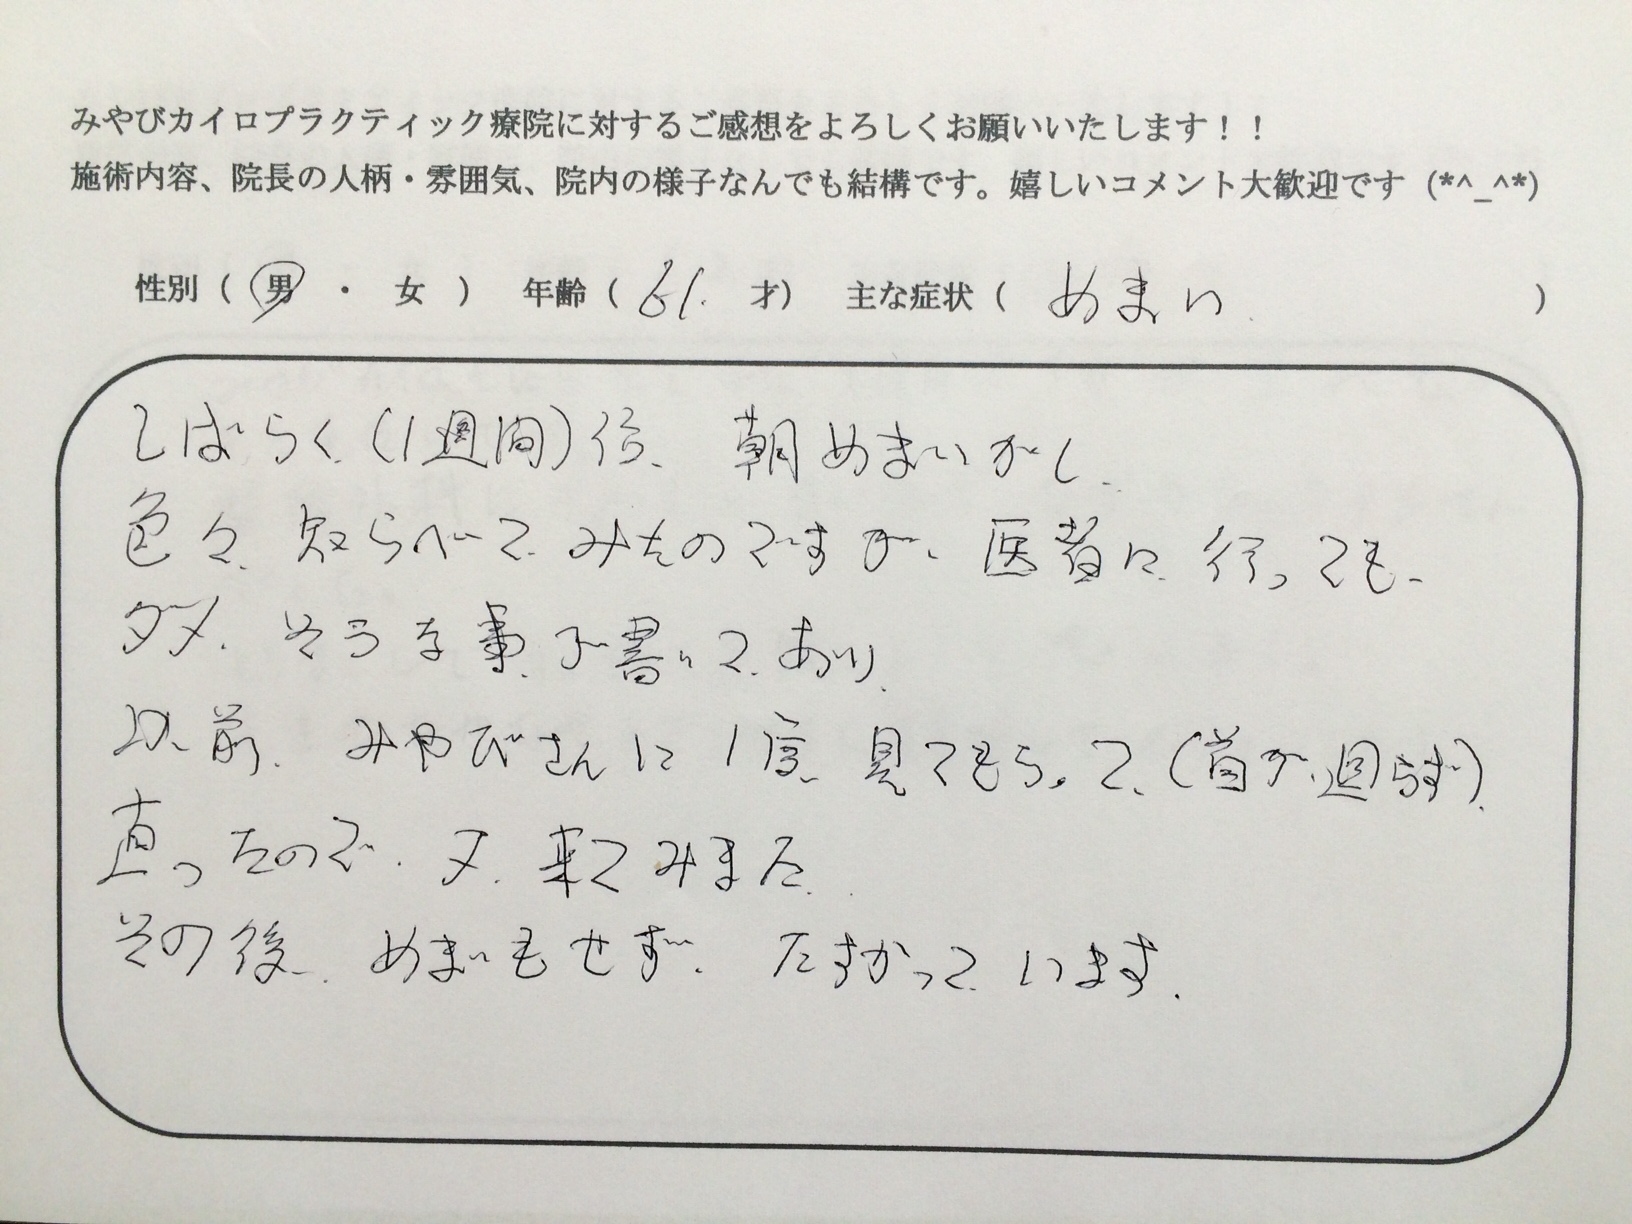 みやびカイロプラクティック療院に対するご感想をよろしくお願いいたします！！
施術内容、院長の人柄・雰囲気、院内の様子なんでも結構です。嬉しいコメント大歓迎です (*^_^*)
性別（ 男 ・ 女 ） 年齢（ 61. 才） 主な症状（ めまい ）
しばらく、(1週間)位、朝めまいがし、
色々、知らべて、みたのですが、医者に、行っても、
ダメ、そうな事が書いて、あり、
以前、みやびさんに1度、見てもらって、(首が、回らず)、
直ったので、又、来てみました。
その後、めまいもせず、たすかって、います。